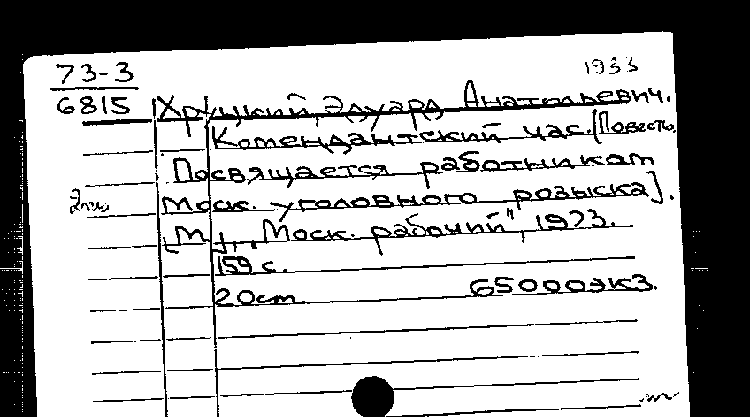 73-3
6815
1933
Хруцкий, Эдуард Анатольевич.
Комендантский час. [Повесть.
Посвящается работникам
Моск. уголовного розыска].
[М.], "Моск. рабочий", 1973.
159 с.
20 cm. 65000 экз.